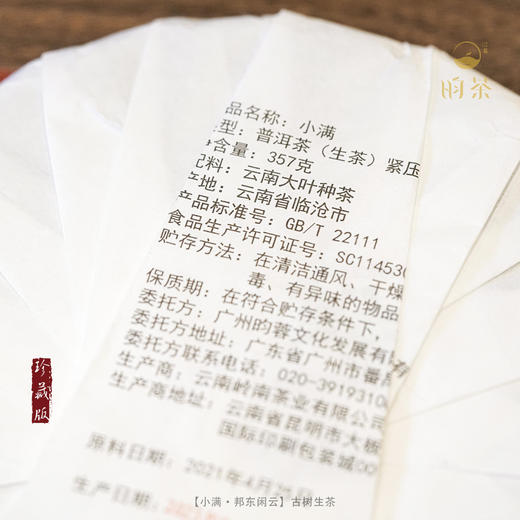 昀茶
品名称：小满
型：普洱茶（生茶）紧压
含量：357克
配料：云南大叶种茶
产地：云南省临沧市
产品标准号：GB/T 22111
食品生产许可证号：SC114530
贮存方法：在清洁通风、干燥
毒、有异味的物品
保质期：在符合贮存条件下，
委托方：广州昀蓉文化发展有
委托方地址：广东省广州市番
委托方联系电话：020-3919310
生产商：云南岭南茶业有限公司
生产商地址：云南省昆明市大板
国际印刷包装城00
原料日期：2021年4月25日
生产日期：2021
珍藏版
【小满·邦东闲云】古树生茶